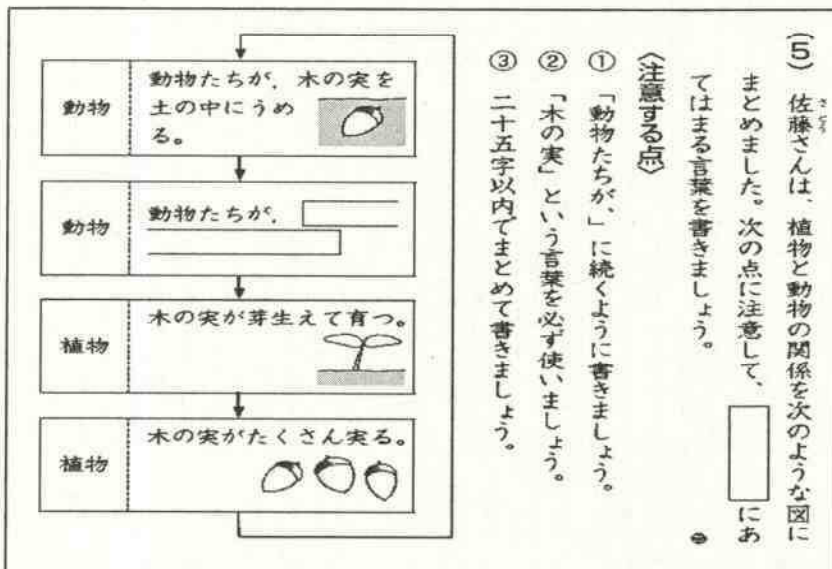 (5) 佐藤さんは、植物と動物の関係を次のような図に
まとめました。次の点に注意して、　　にあ
てはまる言葉を書きましょう。
〈注意する点〉
① 「動物たちが、」に続くように書きましょう。
② 「木の実」という言葉を必ず使いましょう。
③ 二十五字以内でまとめて書きましょう。
動物
動物たちが，木の実を
土の中にうめ
る。
動物
動物たちが，
植物
木の実が芽生えて育つ。
植物
木の実がたくさん実る。